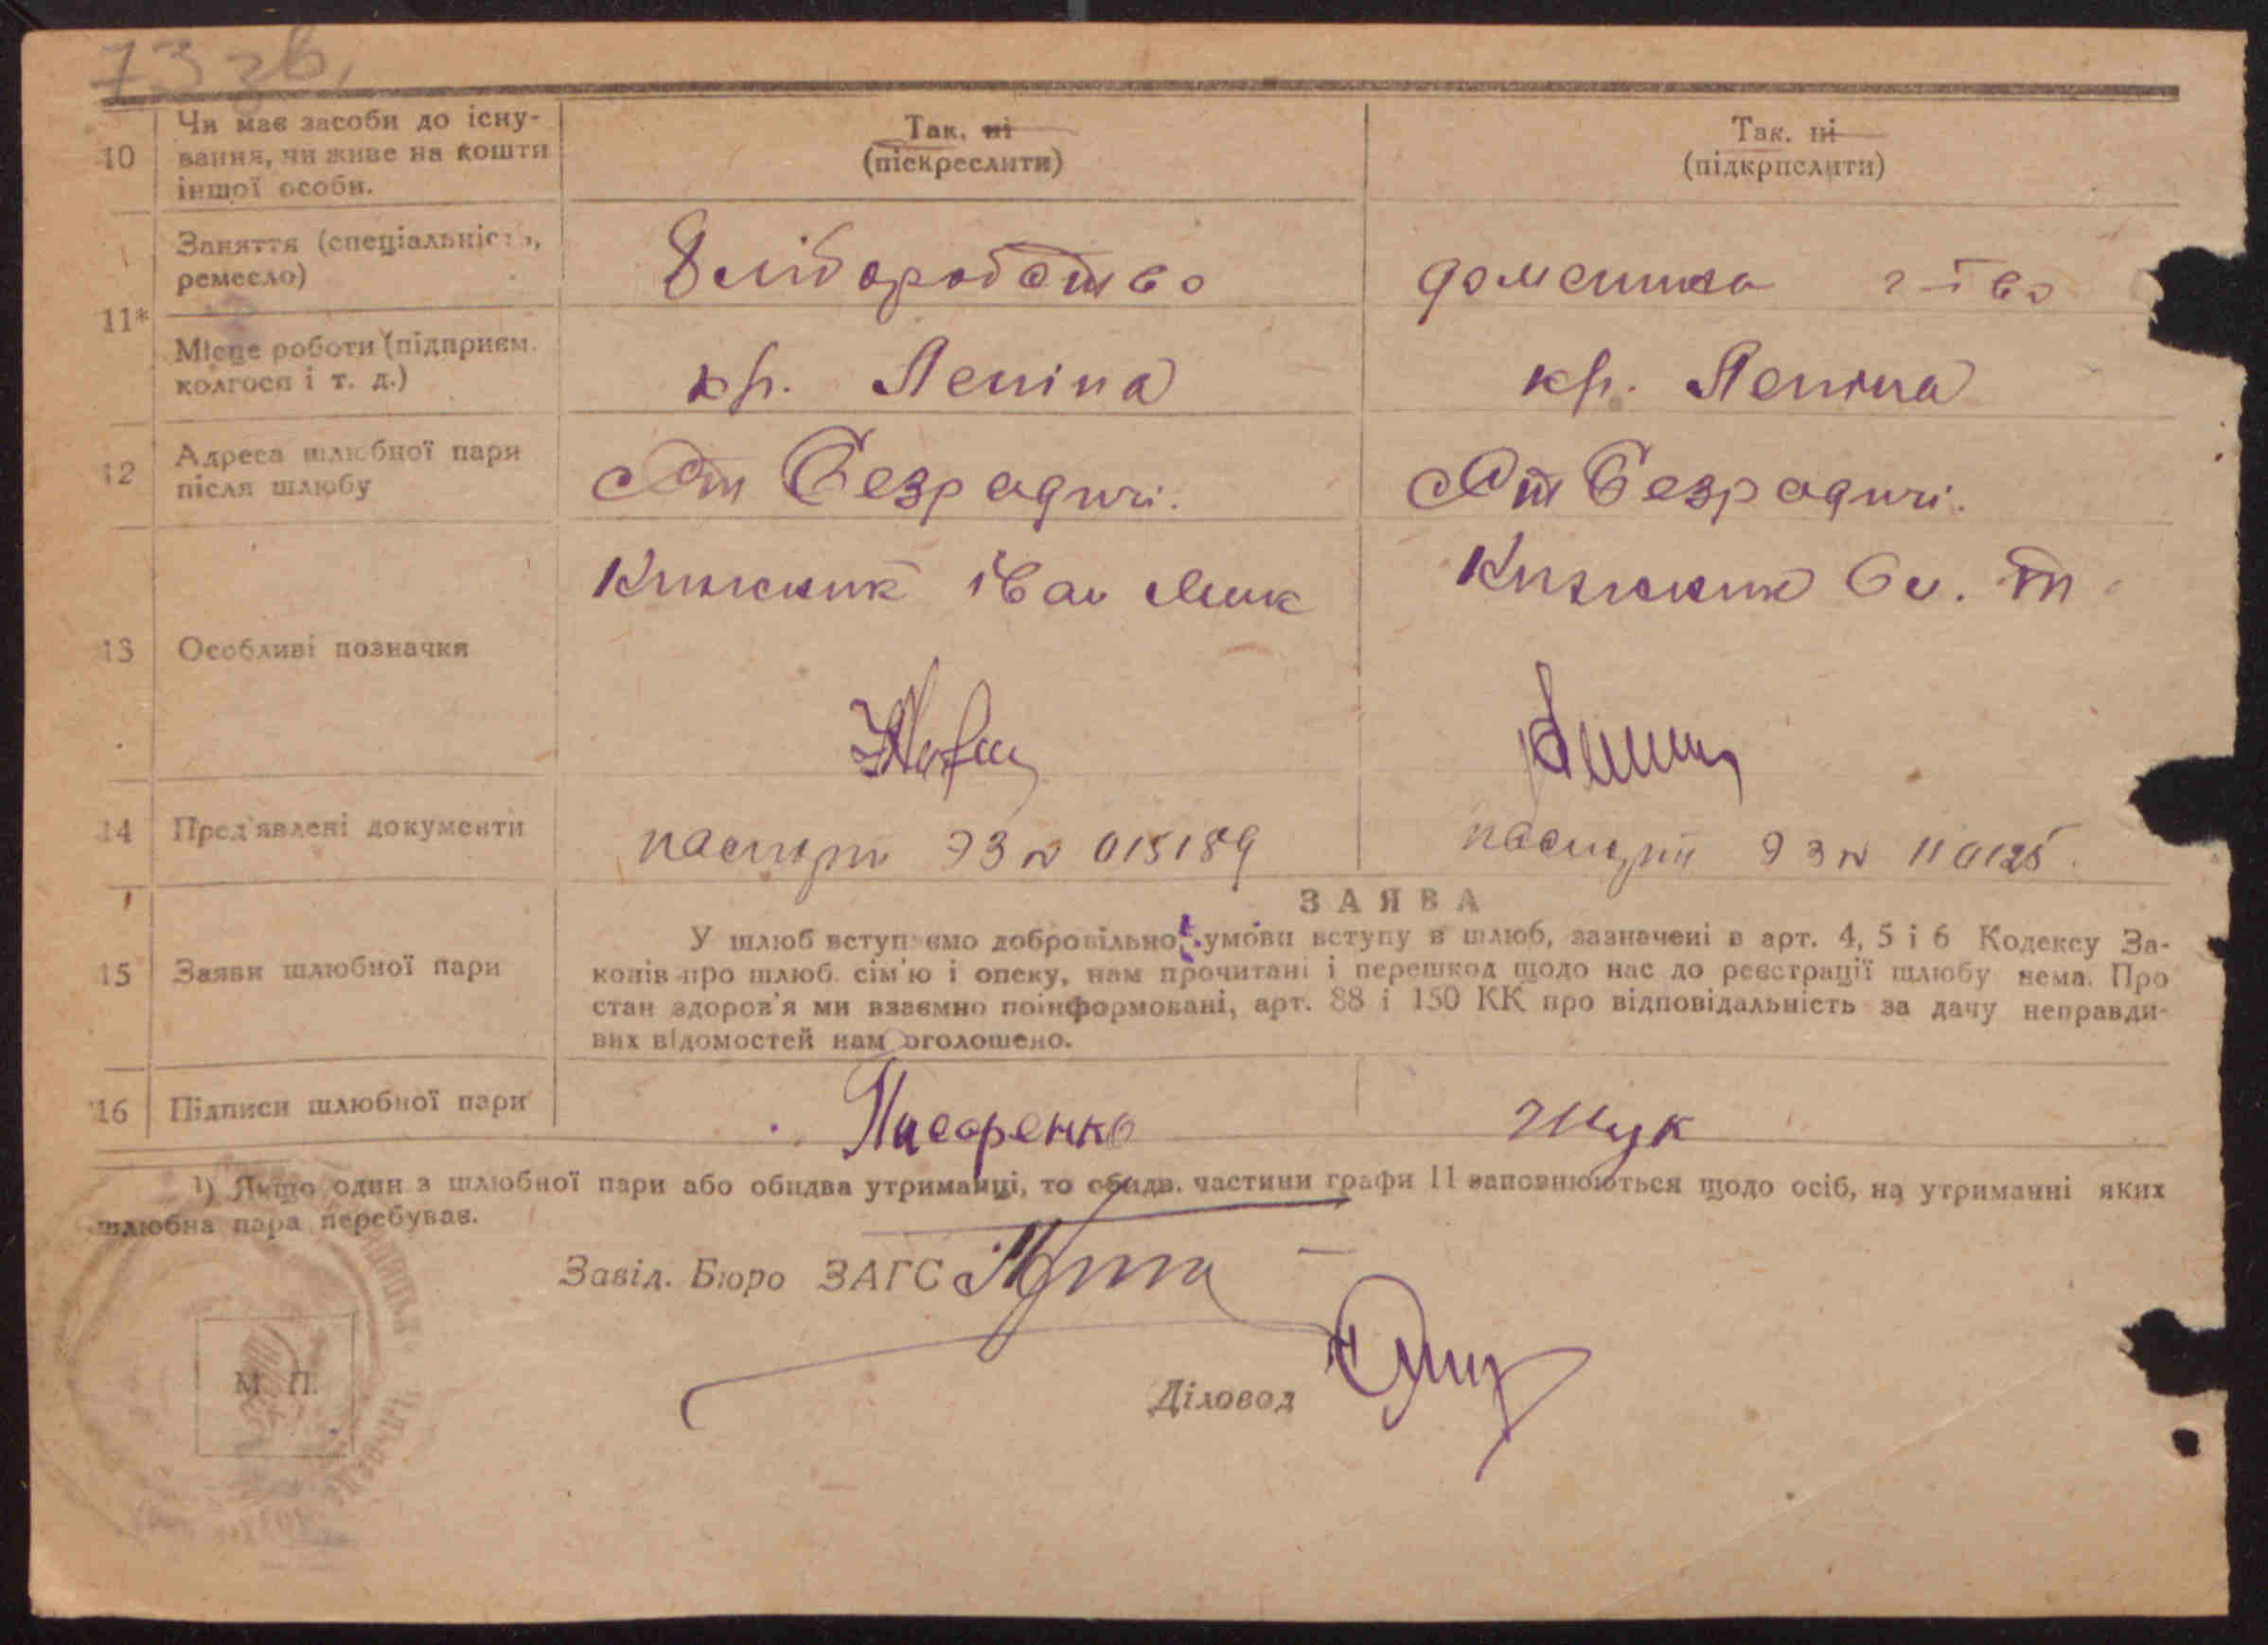 73 зв.
10
Чи має засоби до існу-
вання, чи живе на кошти
іншої особи.
Так, ні
(піскреслити)
Так. ні
(підкрпслити)
11*
Заняття (спеціальність,
ремесло)
Хліборобство
домашнє г-тво
Місце роботи (підприєм.
колгосп і т. д.)
кр. Леніна
кр. Леніна
12
Адреса шлюбної пари
після шлюбу
Ст Безрадичі.
Ст Безрадичі.
13
Особливі позначкя
Іван
14
Пред'явлені документи
паспорт ЭЗ № 015189
паспорт ЭЗ № 110125.
15
Заяви шлюбної пари
ЗАЯВА
У шлюб вступаємо добровільно, умови вступу в шлюб, зазначені в арт. 4, 5 і 6 Кодексу За-
конів про шлюб. сім'ю і опеку, нам прочитані і перешкод щодо нас до реєстрації шлюбу нема. Про
стан здоров'я ми взаємно поінформовані, арт. 88 і 150 КК про відповідальність за дачу неправди-
вих відомостей нам оголошено.
16
Підписи шлюбної пари
Писаренко
Жук
1) Якщо один з шлюбної пари або обидва утриманці, то обидв. частини графи 11 заповнюються щодо осіб, на утриманні яких
шлюбна пара перебуває.
Завід. Бюро ЗАГС
Діловод
М. П.